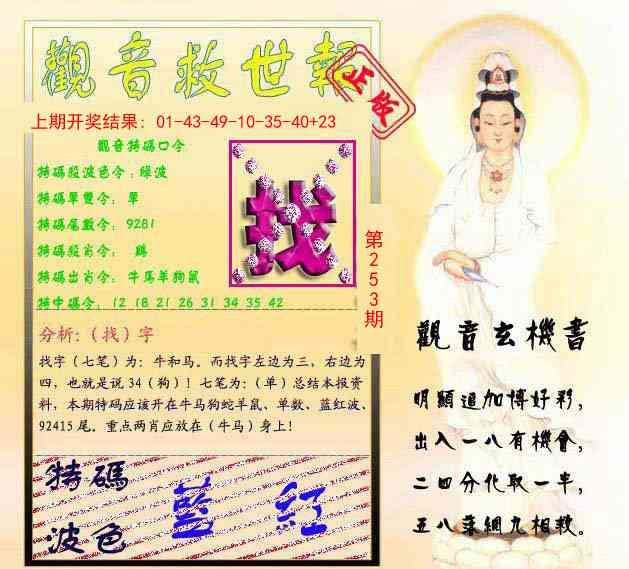 觀音救世報
正版
上期开奖结果：01-43-49-10-35-40+23
觀音特碼口令
特碼殺波色令：綠波
特碼單雙令：單
特碼尾數令：9281
特碼殺肖令：鷄
特碼出肖令：牛馬羊狗鼠
特中碼令：12 18 21 26 31 34 35 42
找
第253期
分析:（找）字
找字（七笔）为：牛和马。而找字左边为三，右边为
四，也就是说 34（狗）！七笔为：（单）总结本报资
料，本期特码应该开在牛马狗蛇羊鼠、单数、蓝红波、
92415 尾。重点两肖应放在（牛马）身上！
特碼
波色
藍 紅
觀音玄機書
明顯追加博好彩，
出入一八有機會，
二四分化取一半，
五八落網九相救。